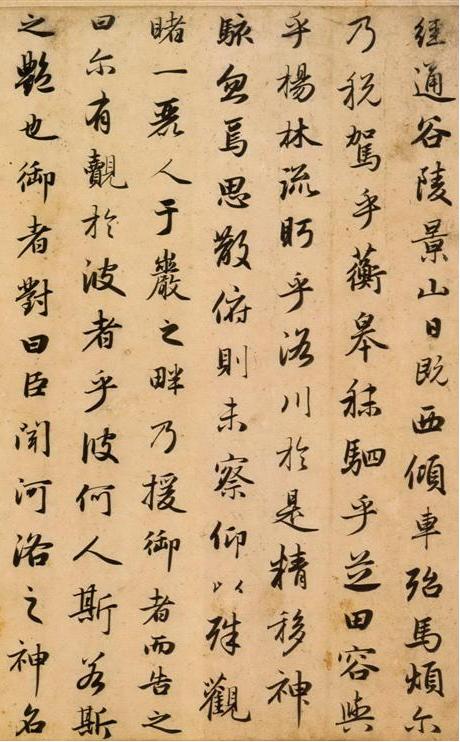 經通谷陵景山日既西傾車殆馬煩尔
乃税駕乎蘅皋秣駟乎芝田容與
乎楊林流眄乎洛川於是精移神
駭忽焉思散俯則未察仰以殊觀
睹一麗人于巖之畔乃援御者而告之
曰尔有覿於彼者乎彼何人斯若斯
之艷也御者對曰臣聞河洛之神名